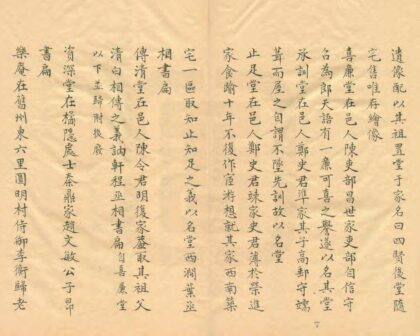 遺像配以其祖置于家名曰四賢後堂隨
宅售唯存繪像
喜廉堂在邑人陳吏部昌世家吏部自信守
名為郎天語有一廉可喜之譽遂以名其堂
承訓堂在邑人鄭史君準家其子高郵守端
葺而屋之自謂不墜先訓故以名堂
止足堂在邑人鄭史君竦家史君薄於榮進
家食踰十年不復作宦游想就其家西南築
宅一區取知止知足之義以名堂西澗葉丞
相書扁
傳清堂在邑人陳令君明復家蓋取其祖父
清白相傳之義訥軒程丞相書扁自喜廉堂
以下並歸附後廢
資深堂在橘隱處士秦鼎家趙文敏公子昂
書扁
樂庵在舊州東六里圓明村侍御李衡歸老